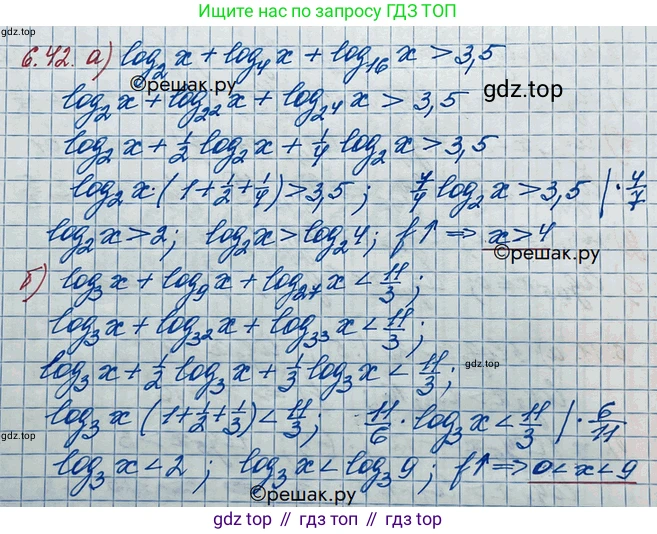 Ищите нас по запросу ГДЗ ТОП
6.42. а) log₂ x + log₄ x + log₁₆ x > 3,5
©reшак.ру
gdz.top
log₂ x + log₂² x + log₂⁴ x > 3,5
log₂ x + 1/2 log₂ x + 1/4 log₂ x > 3,5
log₂ x · (1 + 1/2 + 1/4) > 3,5 ; 7/4 log₂ x > 3,5 | · 4/7
log₂ x > 2 ; log₂ x > log₂ 4 ; f↑ ⇒ x > 4
©reшак.ру
б) log₃ x + log₉ x + log₂₇ x < 11/3 ;
log₃ x + log₃² x + log₃³ x < 11/3 ;
log₃ x + 1/2 log₃ x + 1/3 log₃ x < 11/3 ;
gdz.top
log₃ x (1 + 1/2 + 1/3) < 11/3 ; 11/6 · log₃ x < 11/3 | · 6/11
gdz.top
log₃ x < 2 ; log₃ x < log₃ 9 ; f↑ ⇒ 0 < x < 9
©reшак.ру
gdz top // гдз топ // gdz.top